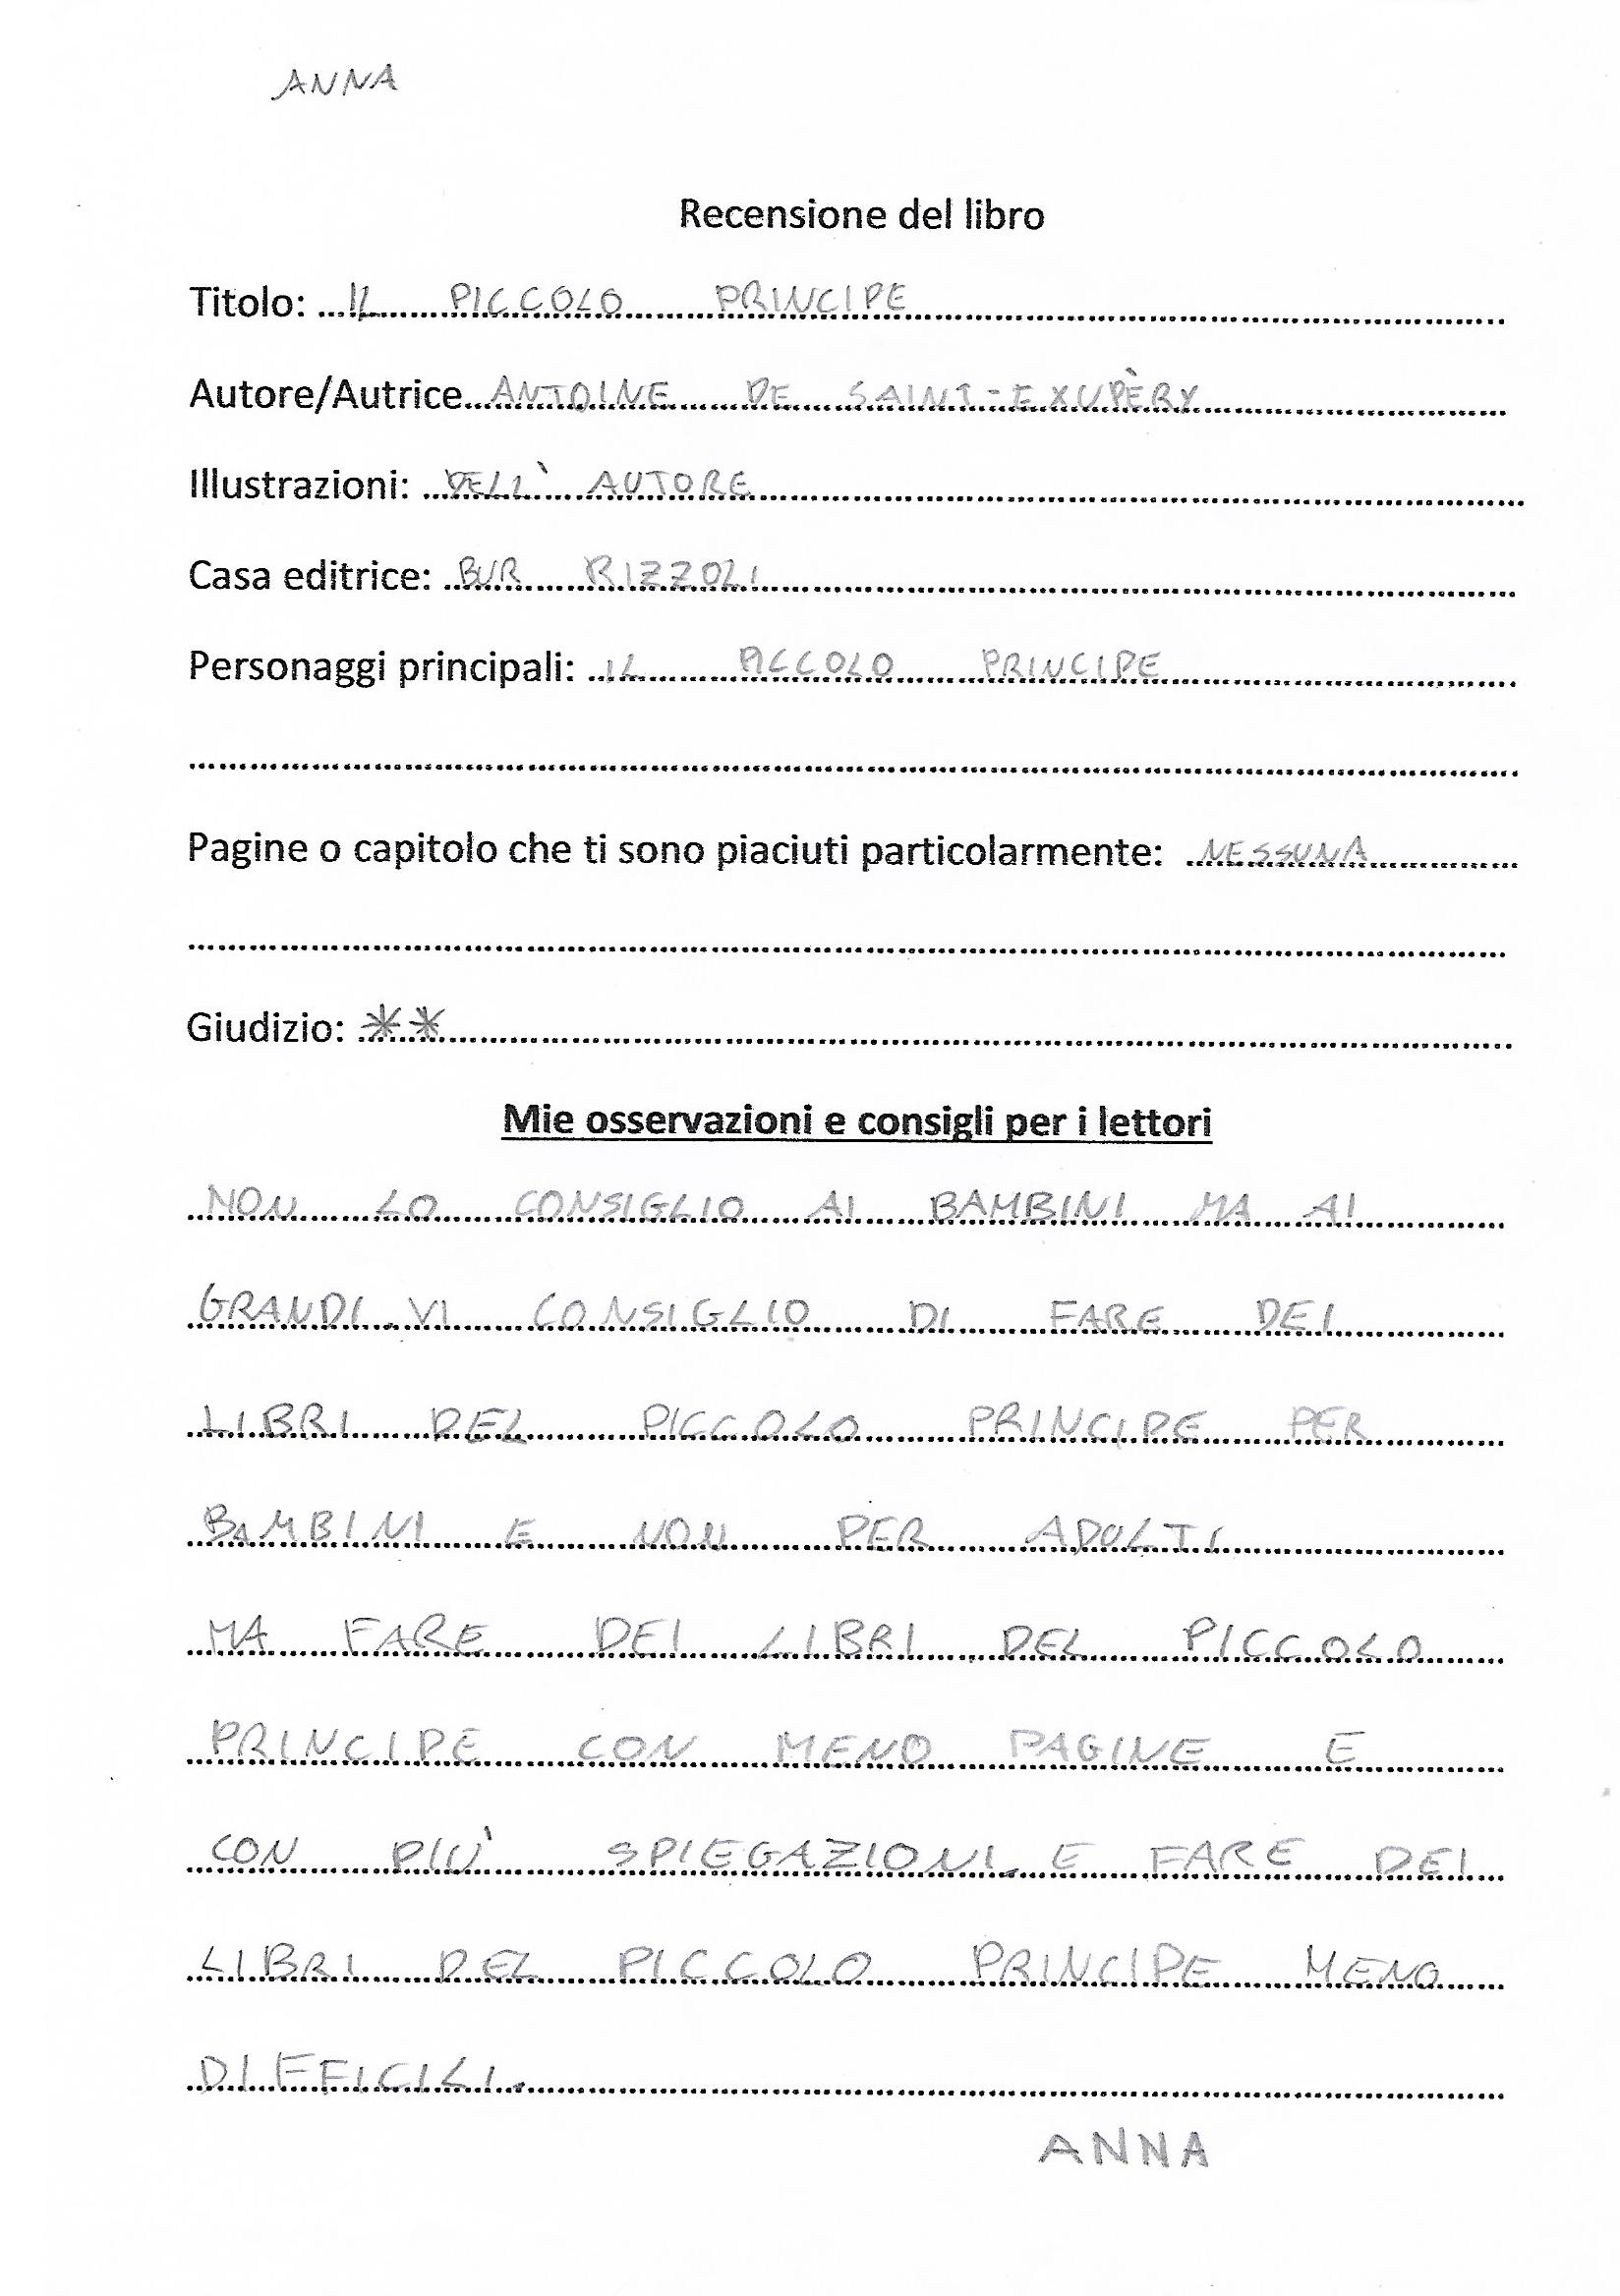 ANNA
Recensione del libro
Titolo: IL PICCOLO PRINCIPE
Autore/Autrice ANTOINE DE SAINT-EXUPÈRY
Illustrazioni: DELL` AUTORE
Casa editrice: BUR RIZZOLI
Personaggi principali: IL PICCOLO PRINCIPE
Pagine o capitolo che ti sono piaciuti particolarmente: NESSUNA
Giudizio: **
Mie osservazioni e consigli per i lettori
NON LO CONSIGLIO AI BAMBINI MA AI
GRANDI. VI CONSIGLIO DI FARE DEI
LIBRI DEL PICCOLO PRINCIPE PER
BAMBINI E NON PER ADULTI
MA FARE DEI LIBRI DEL PICCOLO
PRINCIPE CON MENO PAGINE E
CON PIÙ SPIEGAZIONI. E FARE DEI
LIBRI DEL PICCOLO PRINCIPE MENO
DIFFICILI.
ANNA